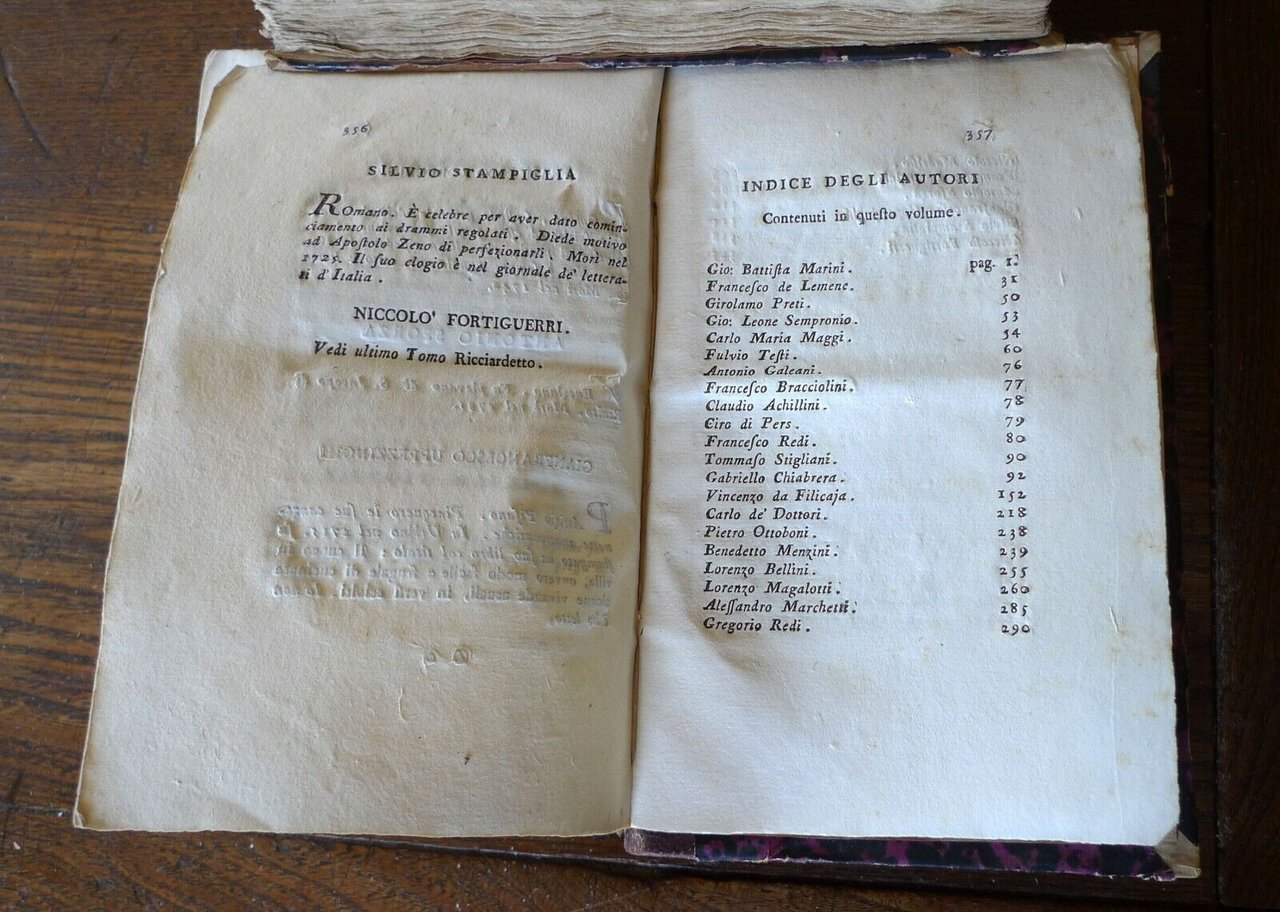 356
SILVIO STAMPIGLIA
Romano. È celebre per aver dato comin-
ciamento ai drammi regolati. Diede motivo
ad Apoſtolo Zeno di perfezionarli. Morì nel
1725. Il ſuo elogio è nel giornale de' lettera-
ti d'Italia.
NICCOLO' FORTIGUERRI.
Vedi ultimo Tomo Ricciardetto.
357
INDICE DEGLI AUTORI
Contenuti in queſto volume.
Gio: Battiſta Marini. pag. 1.
Franceſco de Lemene. 31
Girolamo Preti. 50
Gio: Leone Sempronio. 53
Carlo Maria Maggi. 54
Fulvio Teſti. 60
Antonio Galeani. 76
Franceſco Bracciolini. 77
Claudio Achillini. 78
Ciro di Pers. 79
Franceſco Redi. 80
Tommaſo Stigliani. 90
Gabriello Chiabrera. 92
Vincenzo da Filicaja. 152
Carlo de' Dottori. 218
Pietro Ottoboni. 238
Benedetto Menzini. 239
Lorenzo Bellini. 255
Lorenzo Magalotti. 260
Aleſſandro Marchetti. 285
Gregorio Redi. 290